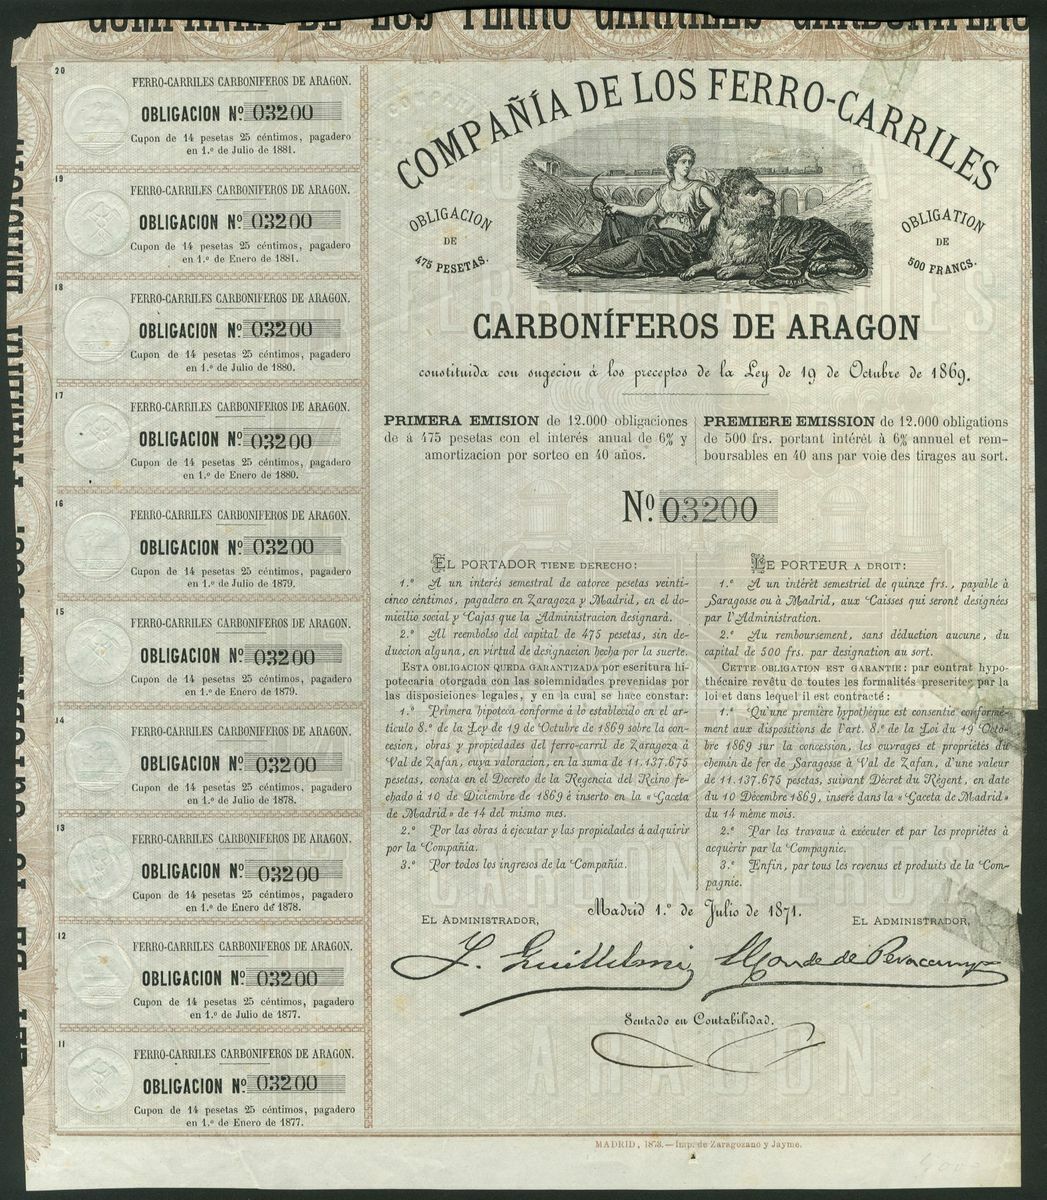 COMPAÑIA DE LOS FERRO-CARRILES CARBONIFEROS
20
FERRO-CARRILES CARBONIFEROS DE ARAGON.
OBLIGACION Nº 03200
Cupon de 14 pesetas 25 céntimos, pagadero
en 1.º de Julio de 1881.
19
FERRO-CARRILES CARBONIFEROS DE ARAGON.
OBLIGACION Nº 03200
Cupon de 14 pesetas 25 céntimos, pagadero
en 1.º de Enero de 1881.
18
FERRO-CARRILES CARBONIFEROS DE ARAGON.
OBLIGACION Nº 03200
Cupon de 14 pesetas 25 céntimos, pagadero
en 1.º de Julio de 1880.
17
FERRO-CARRILES CARBONIFEROS DE ARAGON.
OBLIGACION Nº 03200
Cupon de 14 pesetas 25 céntimos, pagadero
en 1.º de Enero de 1880.
16
FERRO-CARRILES CARBONIFEROS DE ARAGON.
OBLIGACION Nº 03200
Cupon de 14 pesetas 25 céntimos, pagadero
en 1.º de Julio de 1879.
15
FERRO-CARRILES CARBONIFEROS DE ARAGON.
OBLIGACION Nº 03200
Cupon de 14 pesetas 25 céntimos, pagadero
en 1.º de Enero de 1879.
14
FERRO-CARRILES CARBONIFEROS DE ARAGON.
OBLIGACION Nº 03200
Cupon de 14 pesetas 25 céntimos, pagadero
en 1.º de Julio de 1878.
13
FERRO-CARRILES CARBONIFEROS DE ARAGON.
OBLIGACION Nº 03200
Cupon de 14 pesetas 25 céntimos, pagadero
en 1.º de Enero de 1878.
12
FERRO-CARRILES CARBONIFEROS DE ARAGON.
OBLIGACION Nº 03200
Cupon de 14 pesetas 25 céntimos, pagadero
en 1.º de Julio de 1877.
11
FERRO-CARRILES CARBONIFEROS DE ARAGON.
OBLIGACION Nº 03200
Cupon de 14 pesetas 25 céntimos, pagadero
en 1.º de Enero de 1877.
COMPAÑÍA DE LOS FERRO-CARRILES
OBLIGACION
DE
475 PESETAS.
OBLIGATION
DE
500 FRANCS.
CARBONÍFEROS DE ARAGON
constituida con sugecion á los preceptos de la Ley de 19 de Octubre de 1869.
PRIMERA EMISION de 12.000 obligaciones
de á 475 pesetas con el interés anual de 6% y
amortizacion por sorteo en 40 años.
PREMIERE EMISSION de 12.000 obligations
de 500 frs. portant intérêt à 6% annuel et rem-
boursables en 40 ans par voie des tirages au sort.
Nº 03200
EL PORTADOR TIENE DERECHO:
1.º A un interés semestral de catorce pesetas veinti-
cinco céntimos, pagadero en Zaragoza y Madrid, en el do-
micilio social y Cajas que la Administracion designará.
2.º Al reembolso del capital de 475 pesetas, sin de-
duccion alguna, en virtud de designacion hecha por la suerte.
ESTA OBLIGACION QUEDA GARANTIZADA por escritura hi-
potecaria otorgada con las solemnidades prevenidas por
las disposiciones legales, y en la cual se hace constar:
1.º Primera hipoteca conforme á lo establecido en el ar-
tículo 8.º de la Ley de 19 de Octubre de 1869 sobre la con-
cesion, obras y propiedades del ferro-carril de Zaragoza á
Val de Zafan, cuya valoracion, en la suma de 11.137.675
pesetas, consta en el Decreto de la Regencia del Reino fe-
chado á 10 de Diciembre de 1869 é inserto en la «Gaceta
de Madrid» de 14 del mismo mes.
2.º Por las obras á ejecutar y las propiedades á adquirir
por la Compañía.
3.º Por todos los ingresos de la Compañía.
LE PORTEUR A DROIT:
1.º A un intérêt semestriel de quinze frs., payable à
Saragosse ou à Madrid, aux Caisses qui seront designées
par l'Administration.
2.º Au remboursement, sans déduction aucune, du
capital de 500 frs. par designation au sort.
CETTE OBLIGATION EST GARANTIE: par contrat hypo-
thécaire revêtu de toutes les formalités prescrites par la
loi et dans lequel il est contracté:
1.º Qu'une première hypothèque est consentie conformé-
ment aux dispositions de l'art. 8.º de la Loi du 19 Octo-
bre 1869 sur la concession, les ouvrages et proprietés du
chemin de fer de Saragosse à Val de Zafan, d'une valeur
de 11.137.675 pesetas, suivant Décret du Régent, en date
du 10 Décembre 1869, inseré dans la «Gaceta de Madrid»
du 14 même mois.
2.º Par les travaux à exécuter et par les propriétés à
acquérir par la Compagnie.
3.º Enfin, par tous les revenus et produits de la Com-
pagnie.
Madrid 1.º de Julio de 1871.
EL ADMINISTRADOR,
EL ADMINISTRADOR,
Sentado en Contabilidad.
MADRID, 1873.—Imp. de Zaragozano y Jayme.